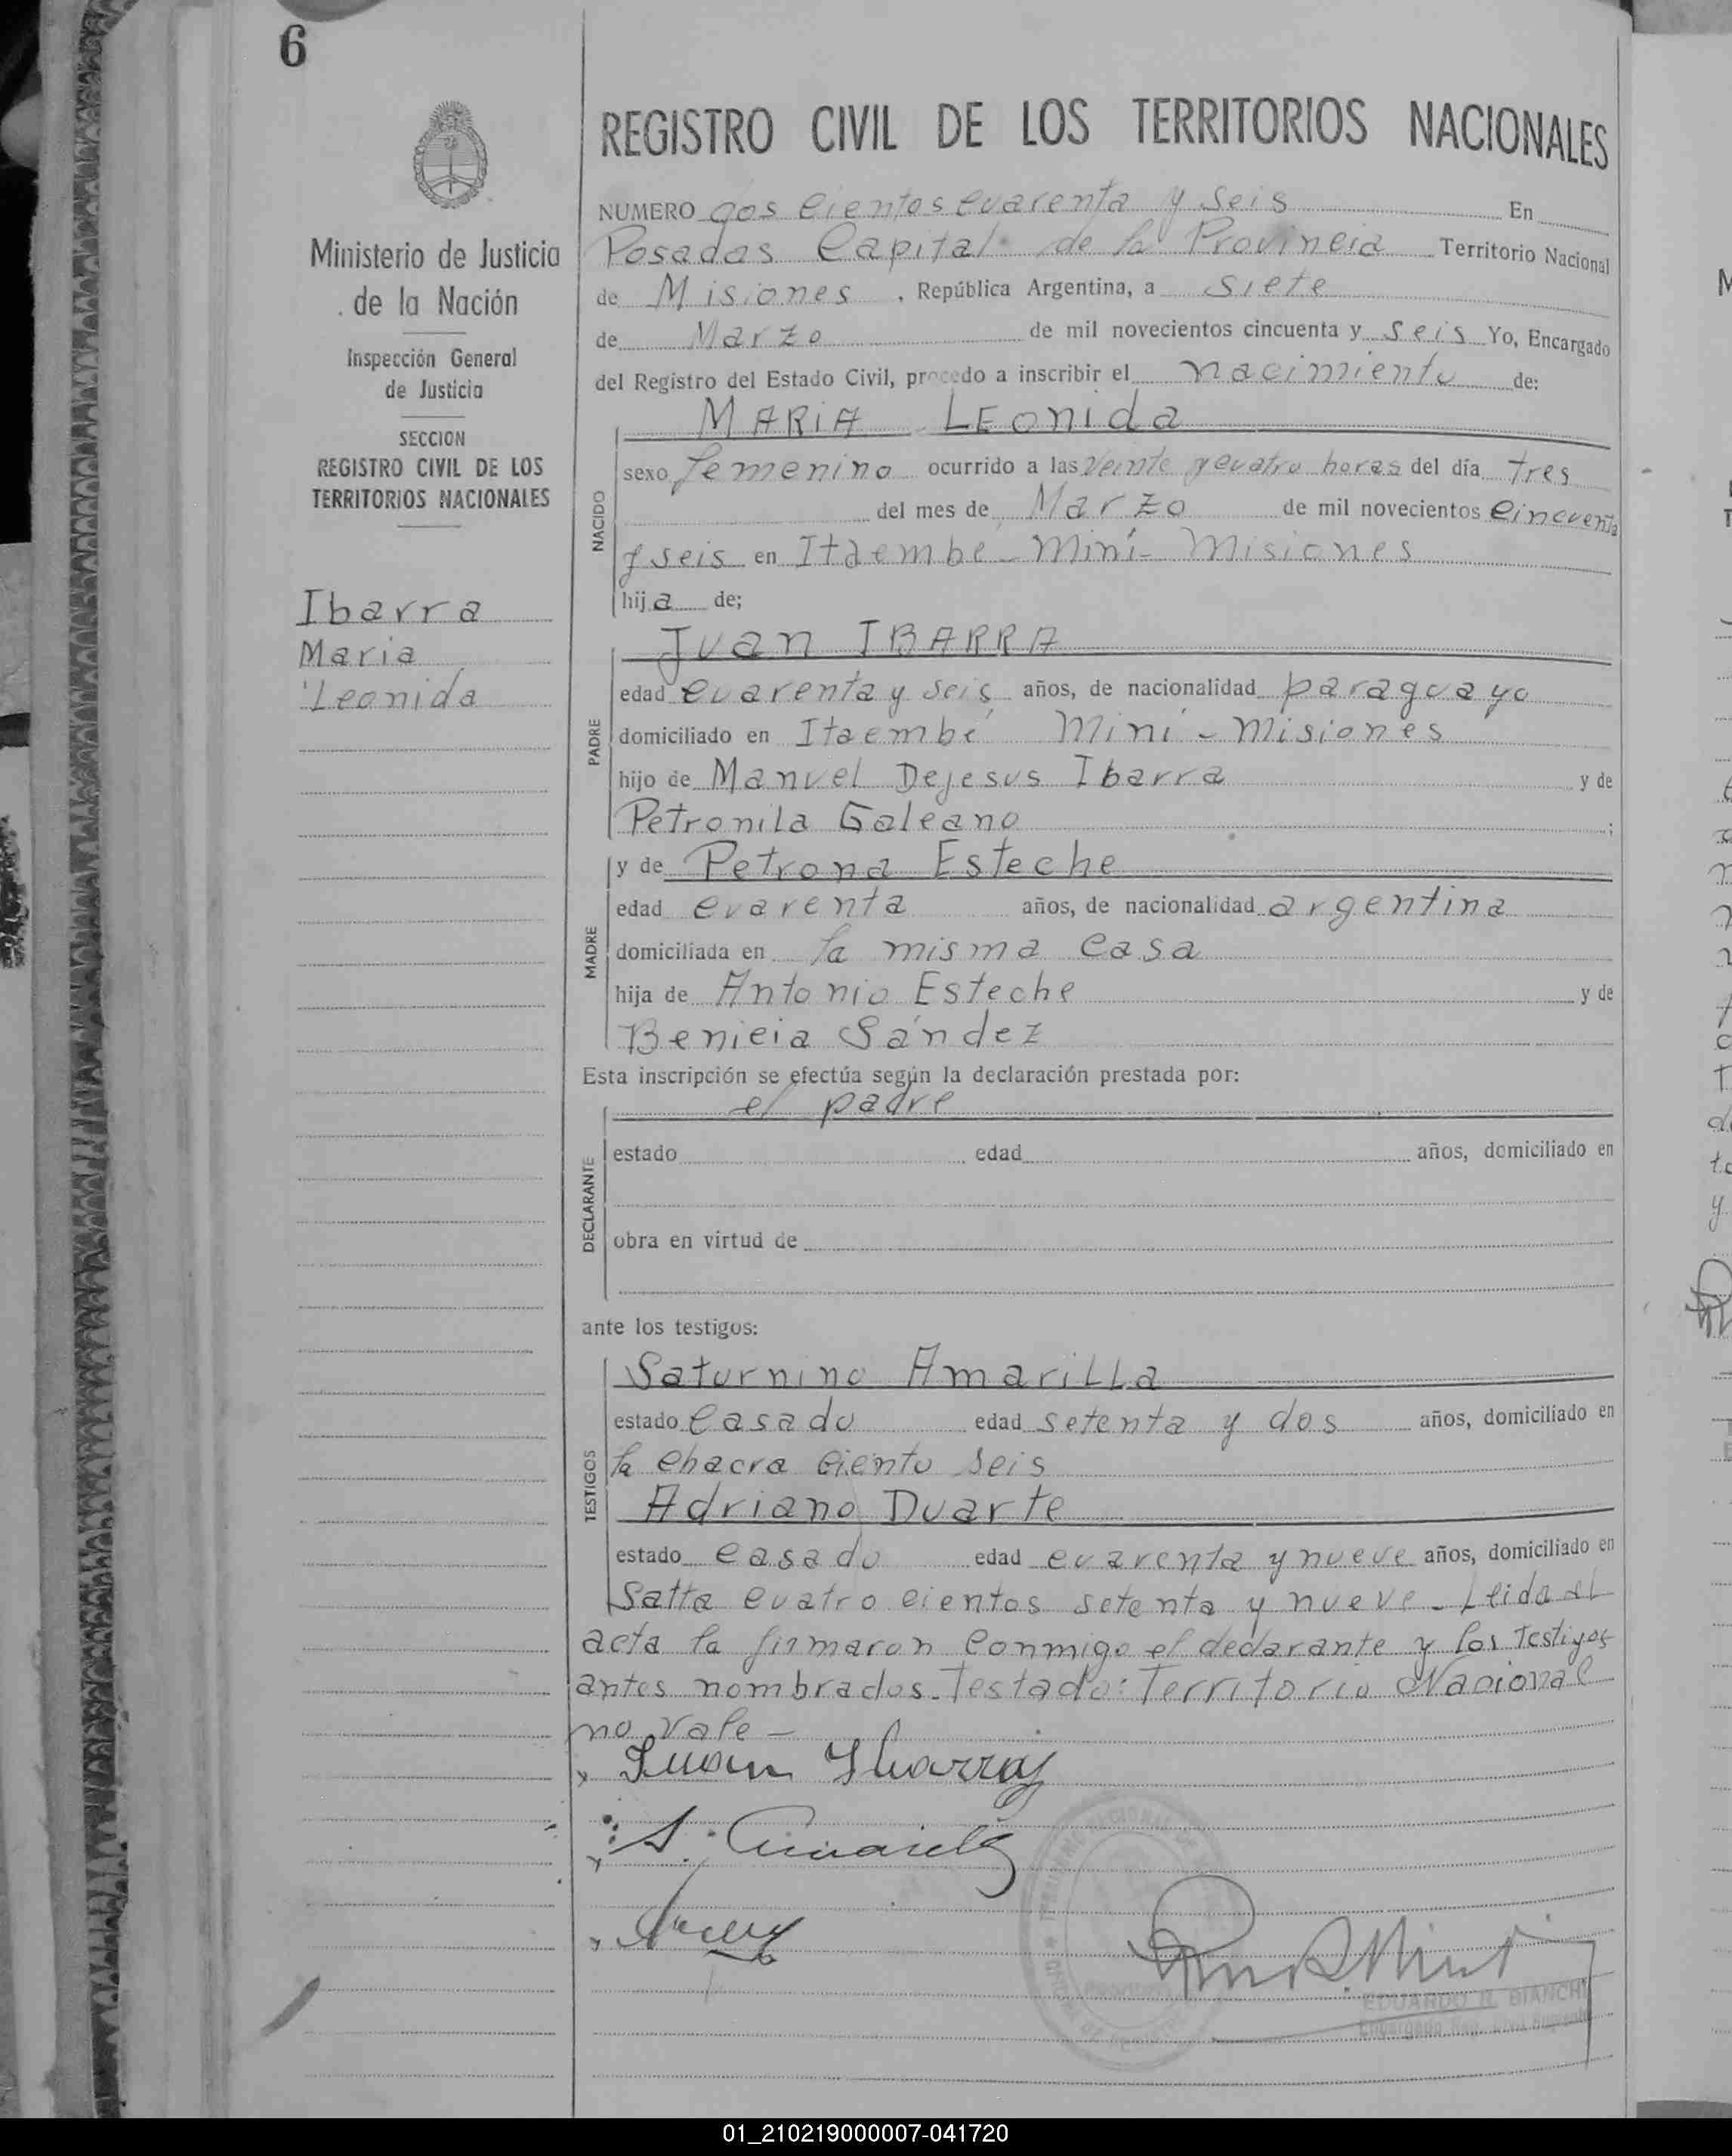 6
REGISTRO CIVIL DE LOS TERRITORIOS NACIONALES
Ministerio de Justicia
de la Nación
Inspección General
de Justicia
SECCION
REGISTRO CIVIL DE LOS
TERRITORIOS NACIONALES
Ibarra
Maria
Leonida
NUMERO dos cientos cuarenta y seis En
Posadas Capital de la Provincia Territorio Nacional
de Misiones, República Argentina, a siete
de Marzo de mil novecientos cincuenta y seis Yo, Encargado
del Registro del Estado Civil, procedo a inscribir el nacimiento de:
MARIA LEONIDA
NACIDO
sexo femenino ocurrido a las veinte y cuatro horas del día tres
del mes de Marzo de mil novecientos cincuenta
y seis en Itaembé-Miní-Misiones
hija de;
Juan IBARRA
PADRE
edad cuarenta y seis años, de nacionalidad paraguayo
domiciliado en Itaembé Miní-Misiones
hijo de Manuel Dejesus Ibarra y de
Petronila Galeano;
y de Petrona Esteche
MADRE
edad cuarenta años, de nacionalidad argentina
domiciliada en la misma casa
hija de Antonio Esteche y de
Benicia Sández
Esta inscripción se efectúa según la declaración prestada por:
el padre
DECLARANTE
estado edad años, domiciliado en
obra en virtud de
ante los testigos:
Saturnino Amarilla
TESTIGOS
estado casado edad setenta y dos años, domiciliado en
la chacra ciento seis
Adriano Duarte
estado casado edad cuarenta y nueve años, domiciliado en
Salta cuatro cientos setenta y nueve. Leida el
acta la firmaron conmigo el declarante y los testigos
antes nombrados. Testado: Territorio Nacional
no vale-
Juan Ibarra
S. Amarilla
EDUARDO R. BIANCHI
Encargado Reg. Civil
01_210219000007-041720